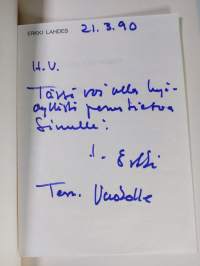 ERKKI LAHDES
21.3.90
H.V.
Tässä voi olla hyö-
dyllistä perustietoa
Sinulle!
t. Erkki
Terv.